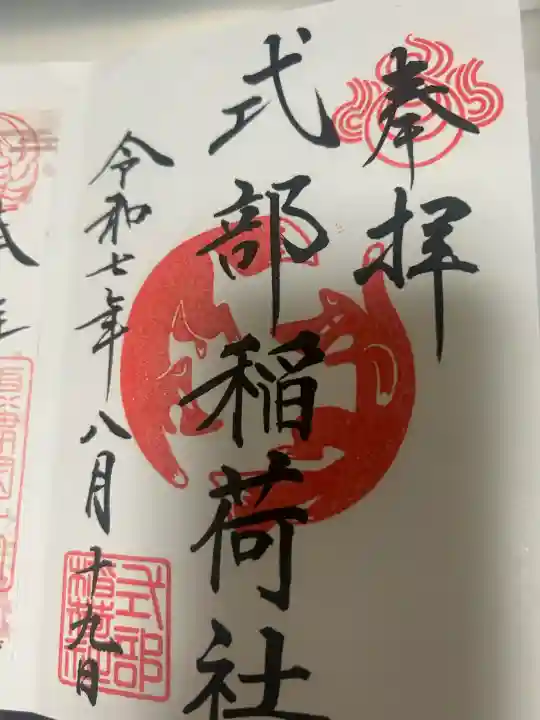 奉拝
式部稲荷社
令和七年八月十九日
式部
稲荷社